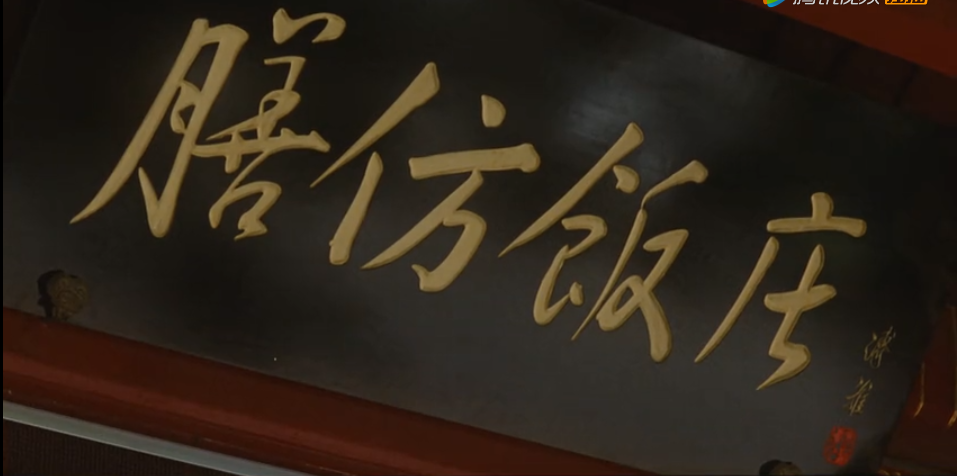 腾讯视频 独播
膳仿飯庄